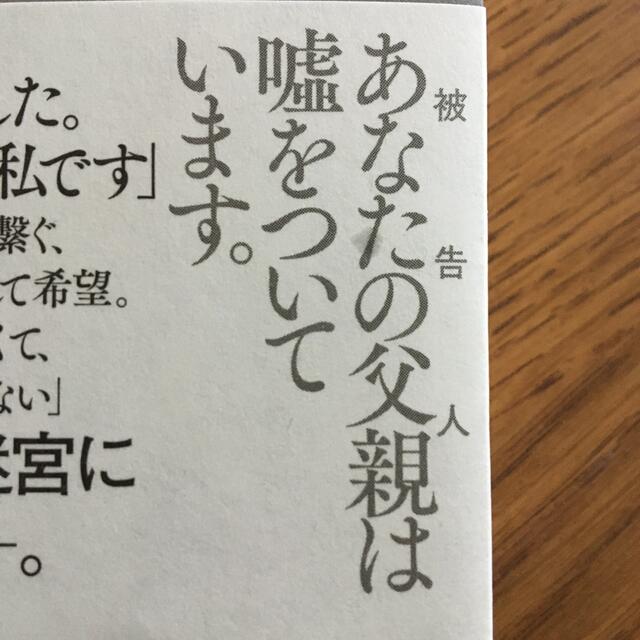 被告人
あなたの父親は
嘘をついて
います。
た。
私です」
繋ぐ、
て希望。
て、
ない」
迷宮に
―。